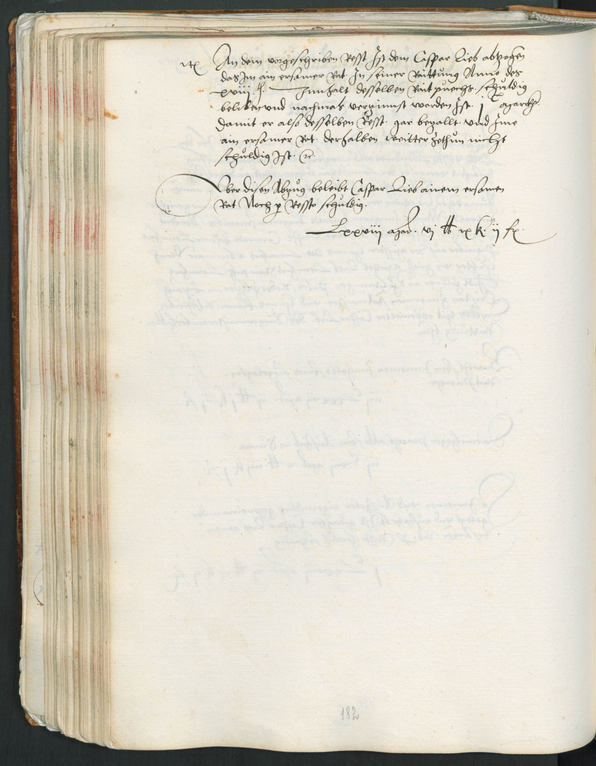 itt An dem vorgeschriben Resst Ist dem Caspar Lieb abzogen
das Im ain ersamer Rat In seiner Raittung Anno des
xviij Innhalt desselben Rait puechs schuldig
beliben und nachmals vergünnst worden Ist.
damit er also desselben Resst gar bezallt und Ime
ain ersamer Rat derhalben weitter zethun nicht
schuldig Ist.
Über disen Abzug beleibt Caspar Lieb ainem ersamen
Rat Noch p Resste schuldig.
Lxxviij vj ix k ij
182